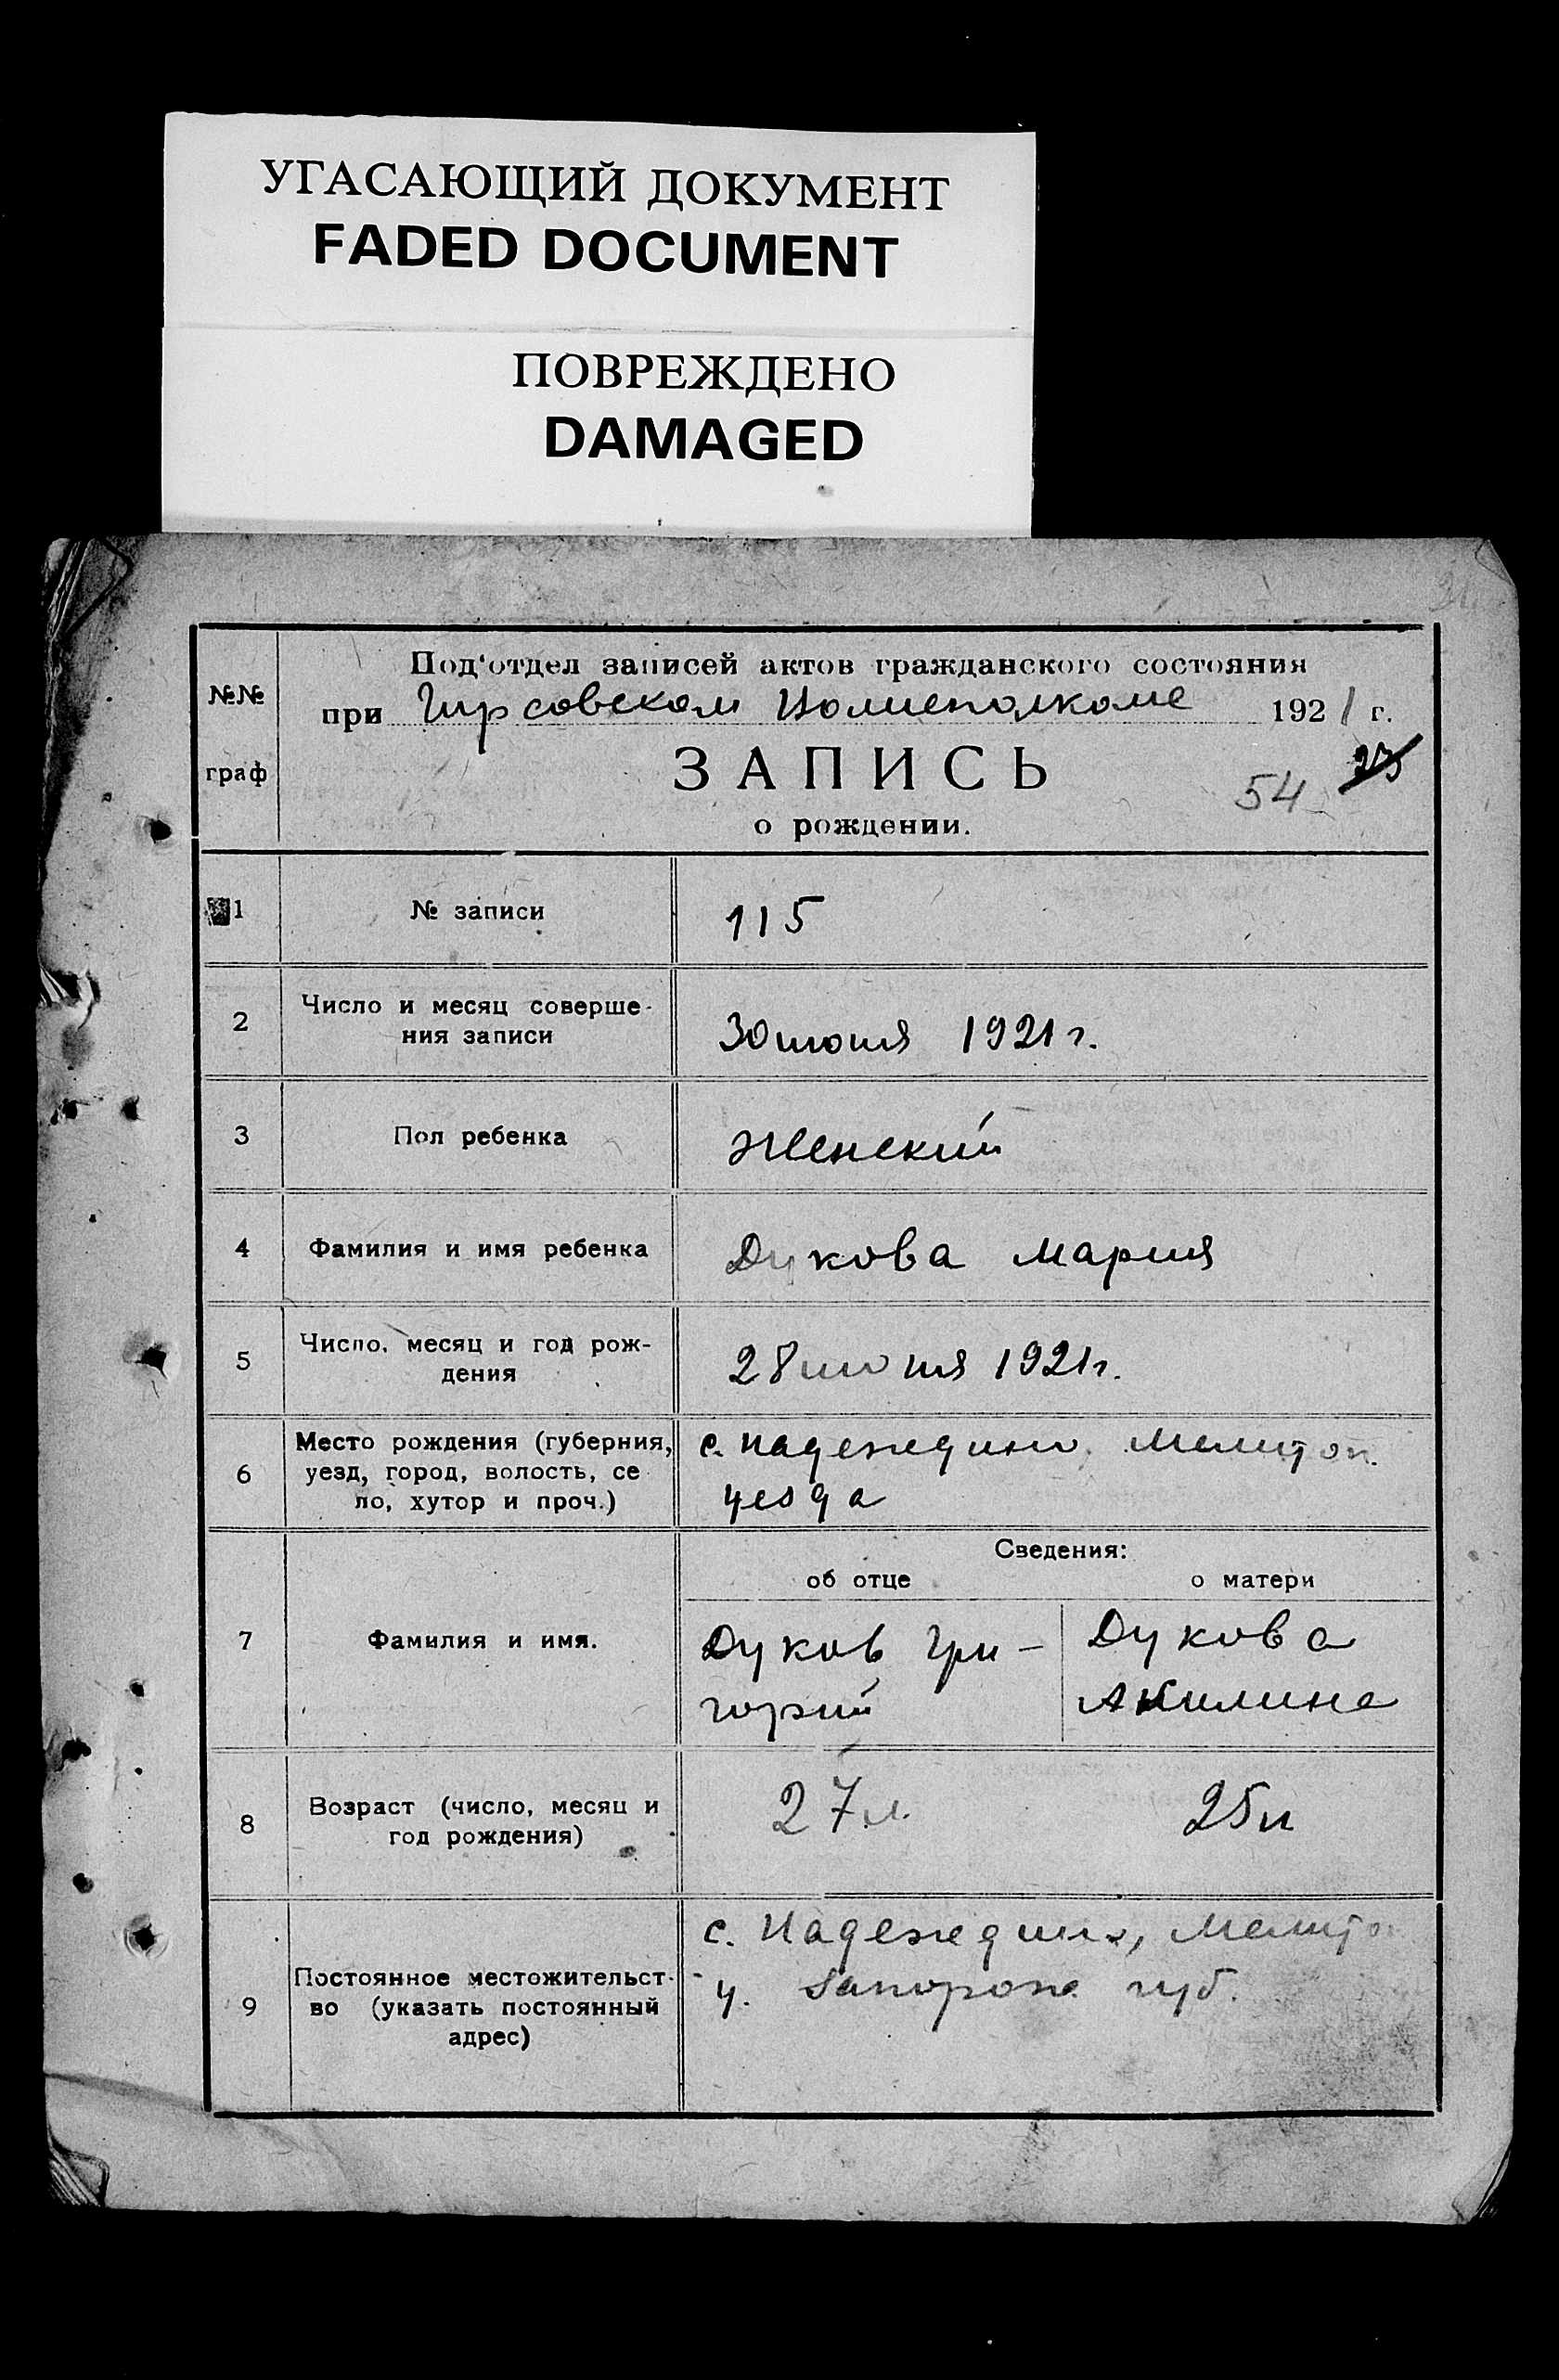 УГАСАЮЩИЙ ДОКУМЕНТ
FADED DOCUMENT
ПОВРЕЖДЕНО
DAMAGED
№№ граф
Под'отдел записей актов гражданского состояния
при Гирсовском Волисполкоме 1921 г.
ЗАПИСЬ
54
о рождении.
1 № записи 115
2 Число и месяц соверше-
ния записи
30 июня 1921 г.
3 Пол ребенка Женский
4 Фамилия и имя ребенка Дукова Мария
5 Число, месяц и год рож-
дения
28 июня 1921 г.
6 Место рождения (губерния,
уезд, город, волость, се
ло, хутор и проч.)
с. Надеждино, Мелитоп.
уезда
Сведения:
об отце о матери
7 Фамилия и имя.
Дуков Гри-
горий
Дукова
Акилина
8 Возраст (число, месяц и
год рождения)
27 л. 25 л
9 Постоянное местожительст-
во (указать постоянный
адрес)
с. Надеждино, Мелитоп
у. Запорож. губ.